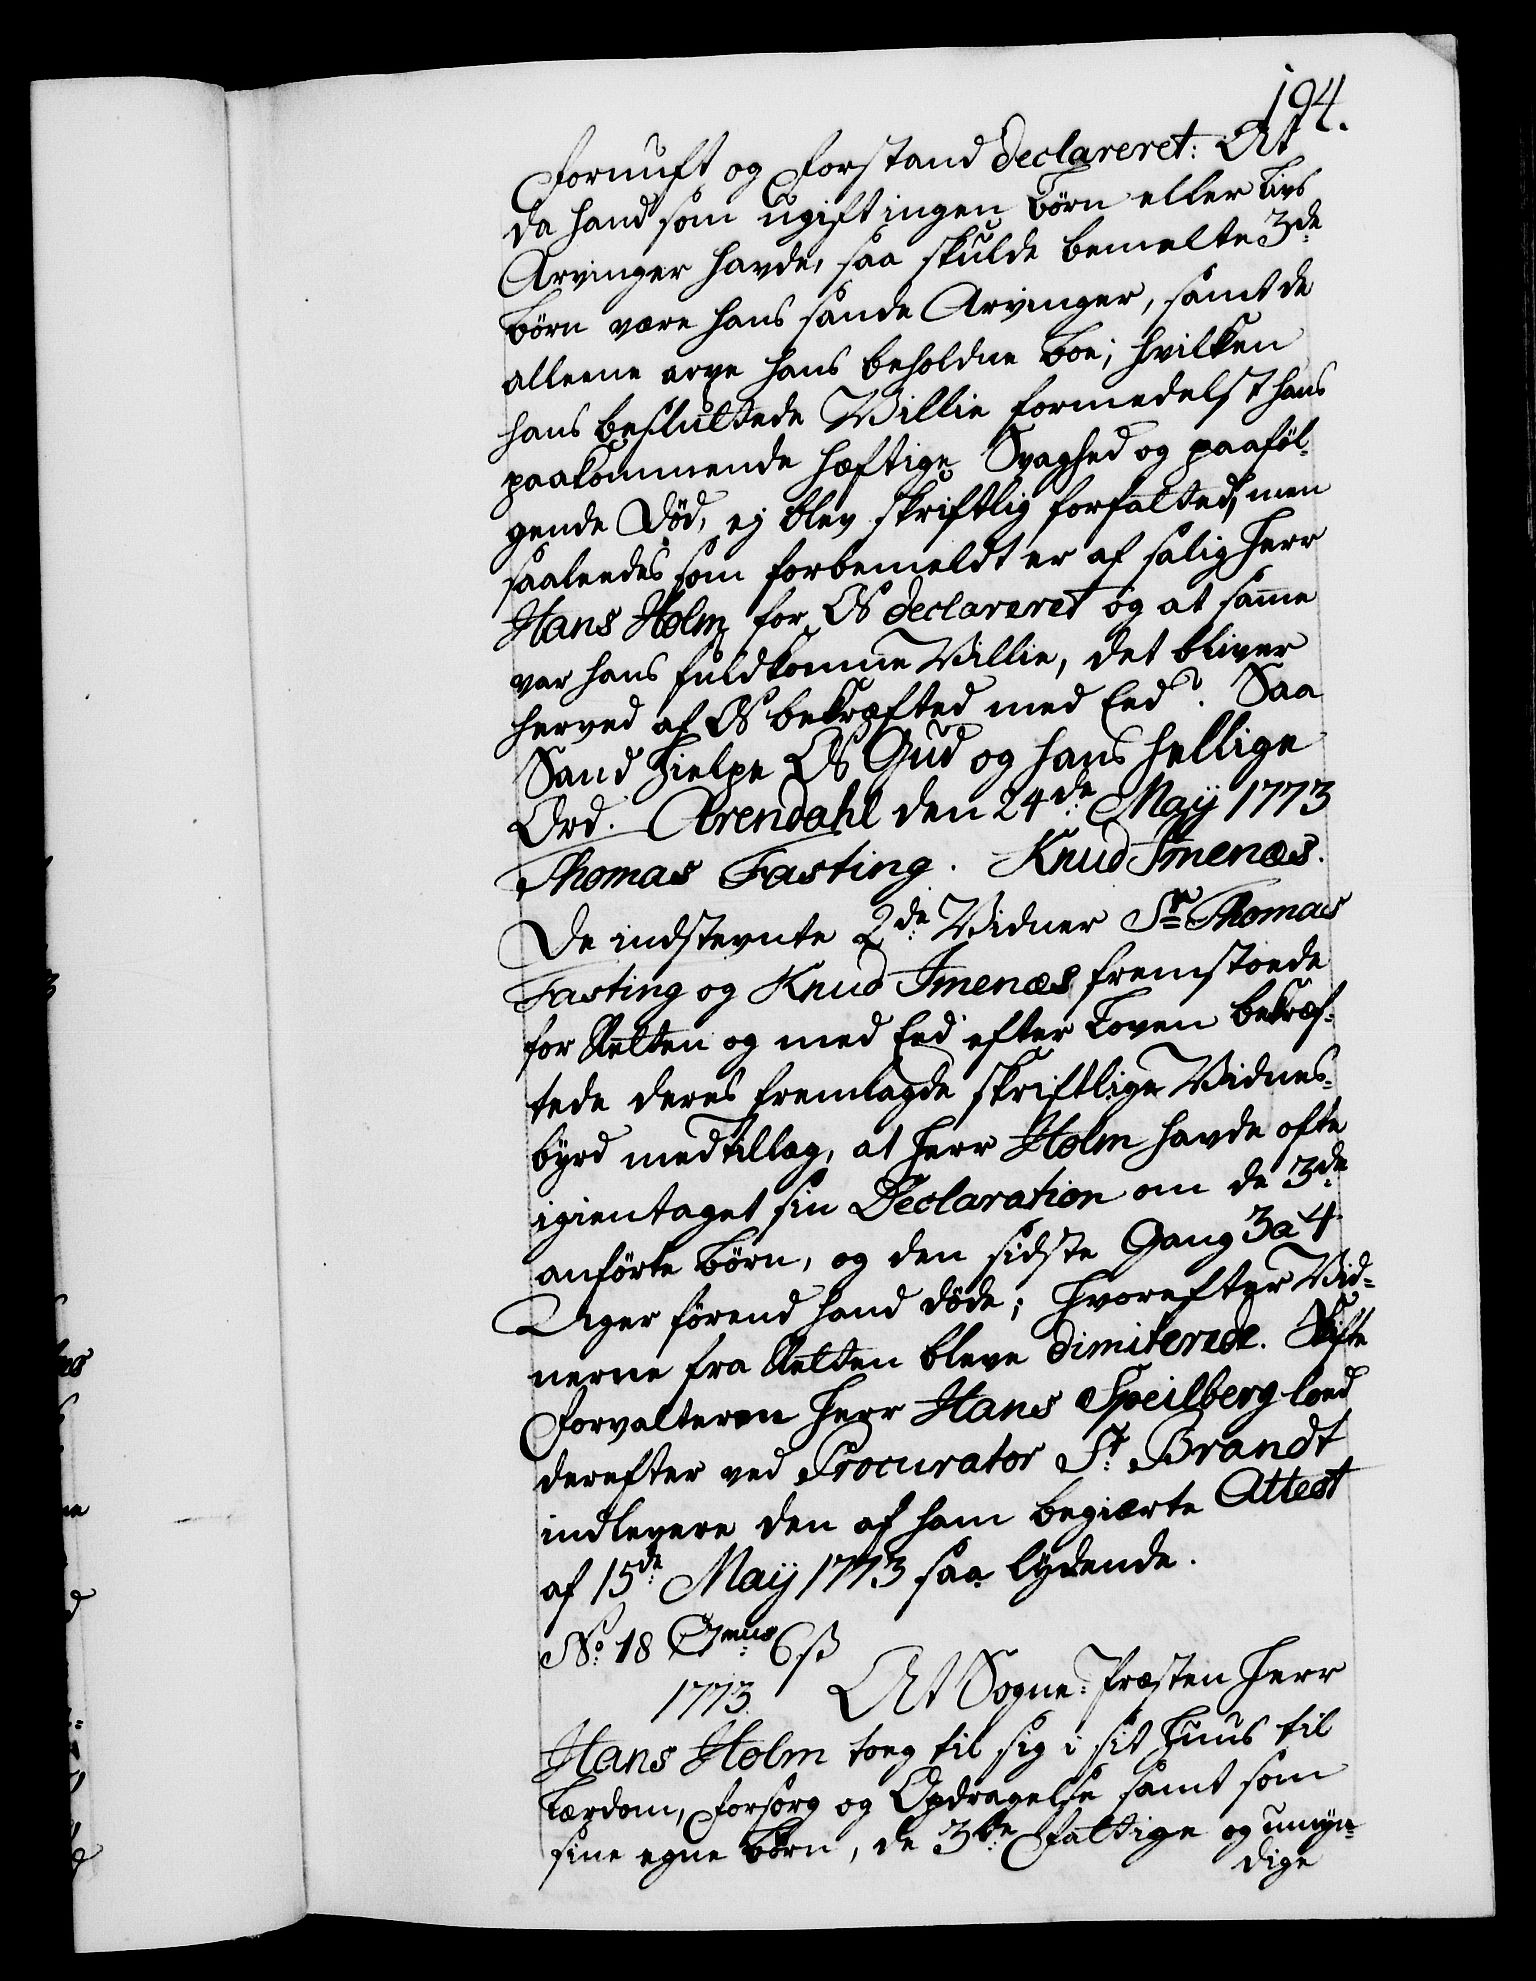 194.
Fornuft og Forstand declareret: At
da hand som ugift ingen Børn eller Livs
Arvinger havde, saa skulde bemelte 3de
Børn være hans sande Arvinger, samt de
alleene arve hans beholdne Boe; hvilken
hans besluttede Villie formedelst hans
paakommende hæftige Svaghed og paaföl-
gende Död, ej blev skriftlig forfatted, men
saaleedes som forbemeldt er af salig Herr
Hans Holm for Os declareret og at samme
var hans fuldkomne Villie, det bliver
herved af Os bekræfted med Eed. Saa
Sand hielpe Os Gud og hans hellige
Ord. Arendahl den 24de May 1773
Thomas Fasting. Knud Imenæs.
De indstevnte 2de Vidner Sr. Thomas
Fasting og Knud Imenæs fremstoede
for Retten og med Eed efter Loven bekræf-
tede deres fremlagde skriftlige Vidnes-
byrd med Tillæg, at Herr Holm havde ofte
igientaget sin Declaration om de 3de
anförte Børn, og den sidste Gang 3 a 4
Uger förend hand döde; hvorefter Vid-
nerne fra Retten bleve dimiterede. Skifte
Forvalteren Herr Hans Speilberg loed
derefter ved Procurator Sr. Brandt
indlevere den af ham begiærte Attest
af 15de May 1773 saa lydende.
No. 18 6 ß
1773. At Sogne-Præsten Herr
Hans Holm tog til sig i sit Huus til
Lærdom, Forsorg og Opdragelse samt som
sine egne Børn, de 3de Fattige og umyn-
dige